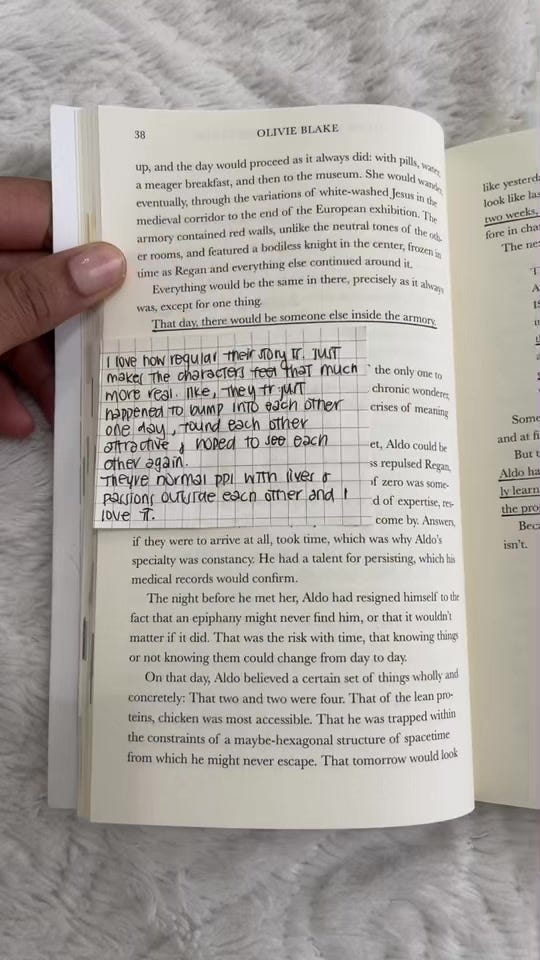 38
OLIVIE BLAKE
up, and the day would proceed as it always did: with pills, water,
a meager breakfast, and then to the museum. She would wander,
eventually, through the variations of white-washed Jesus in the
medieval corridor to the end of the European exhibition. The
armory contained red walls, unlike the neutral tones of the oth-
er rooms, and featured a bodiless knight in the center, frozen in
time as Regan and everything else continued around it.
Everything would be the same in there, precisely as it always
was, except for one thing.
That day, there would be someone else inside the armory.
I love how regular their story is. Just
makes the characters feel that much
more real. like, they just
happened to bump into each other
one day, found each other
attractive & hoped to see each
other again.
Theyre normal ppl with lives &
passions outside each other and I
love it.
the only one to
chronic wonderer,
crises of meaning
et, Aldo could be
ss repulsed Regan,
of zero was some-
d of expertise, res-
come by. Answers,
if they were to arrive at all, took time, which was why Aldo's
specialty was constancy. He had a talent for persisting, which his
medical records would confirm.
The night before he met her, Aldo had resigned himself to the
fact that an epiphany might never find him, or that it wouldn't
matter if it did. That was the risk with time, that knowing things
or not knowing them could change from day to day.
On that day, Aldo believed a certain set of things wholly and
concretely: That two and two were four. That of the lean pro-
teins, chicken was most accessible. That he was trapped within
the constraints of a maybe-hexagonal structure of spacetime
from which he might never escape. That tomorrow would look
like yesterd
look like las
two weeks,
fore in cha
The ne
T
A
Some
and at fi
But t
Aldo ha
ly learn
the pro
Beca
isn't.